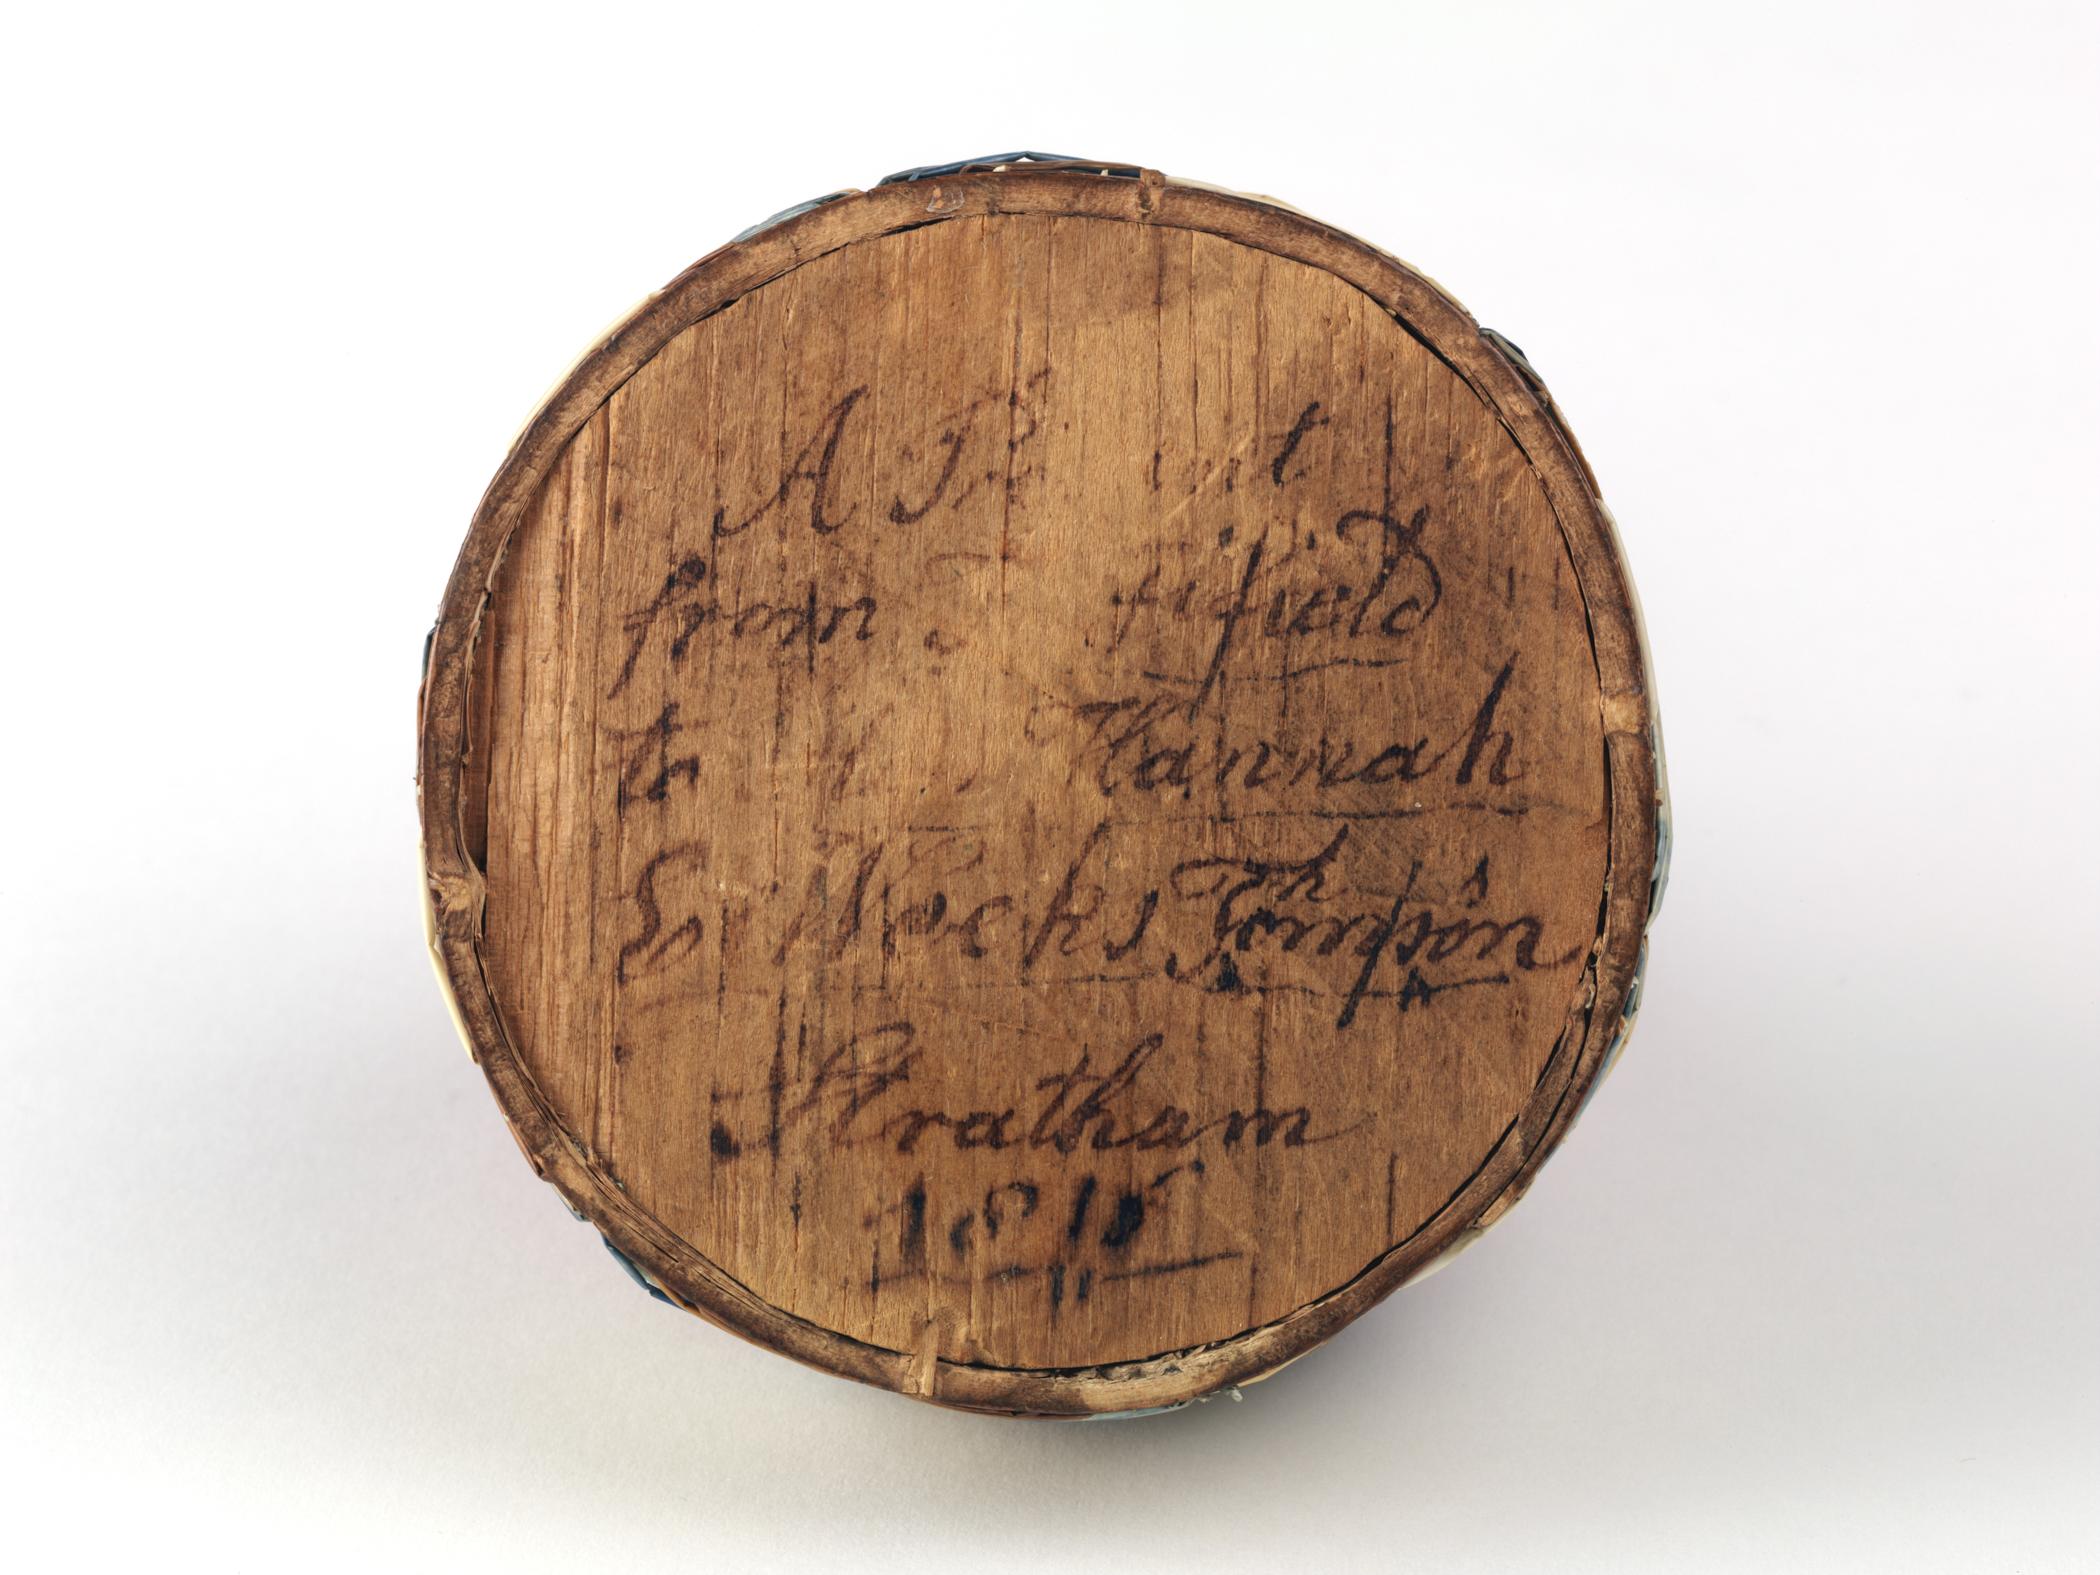 A
from Fifield
to Hannah
& Nocks Thompson
Stratham
1815